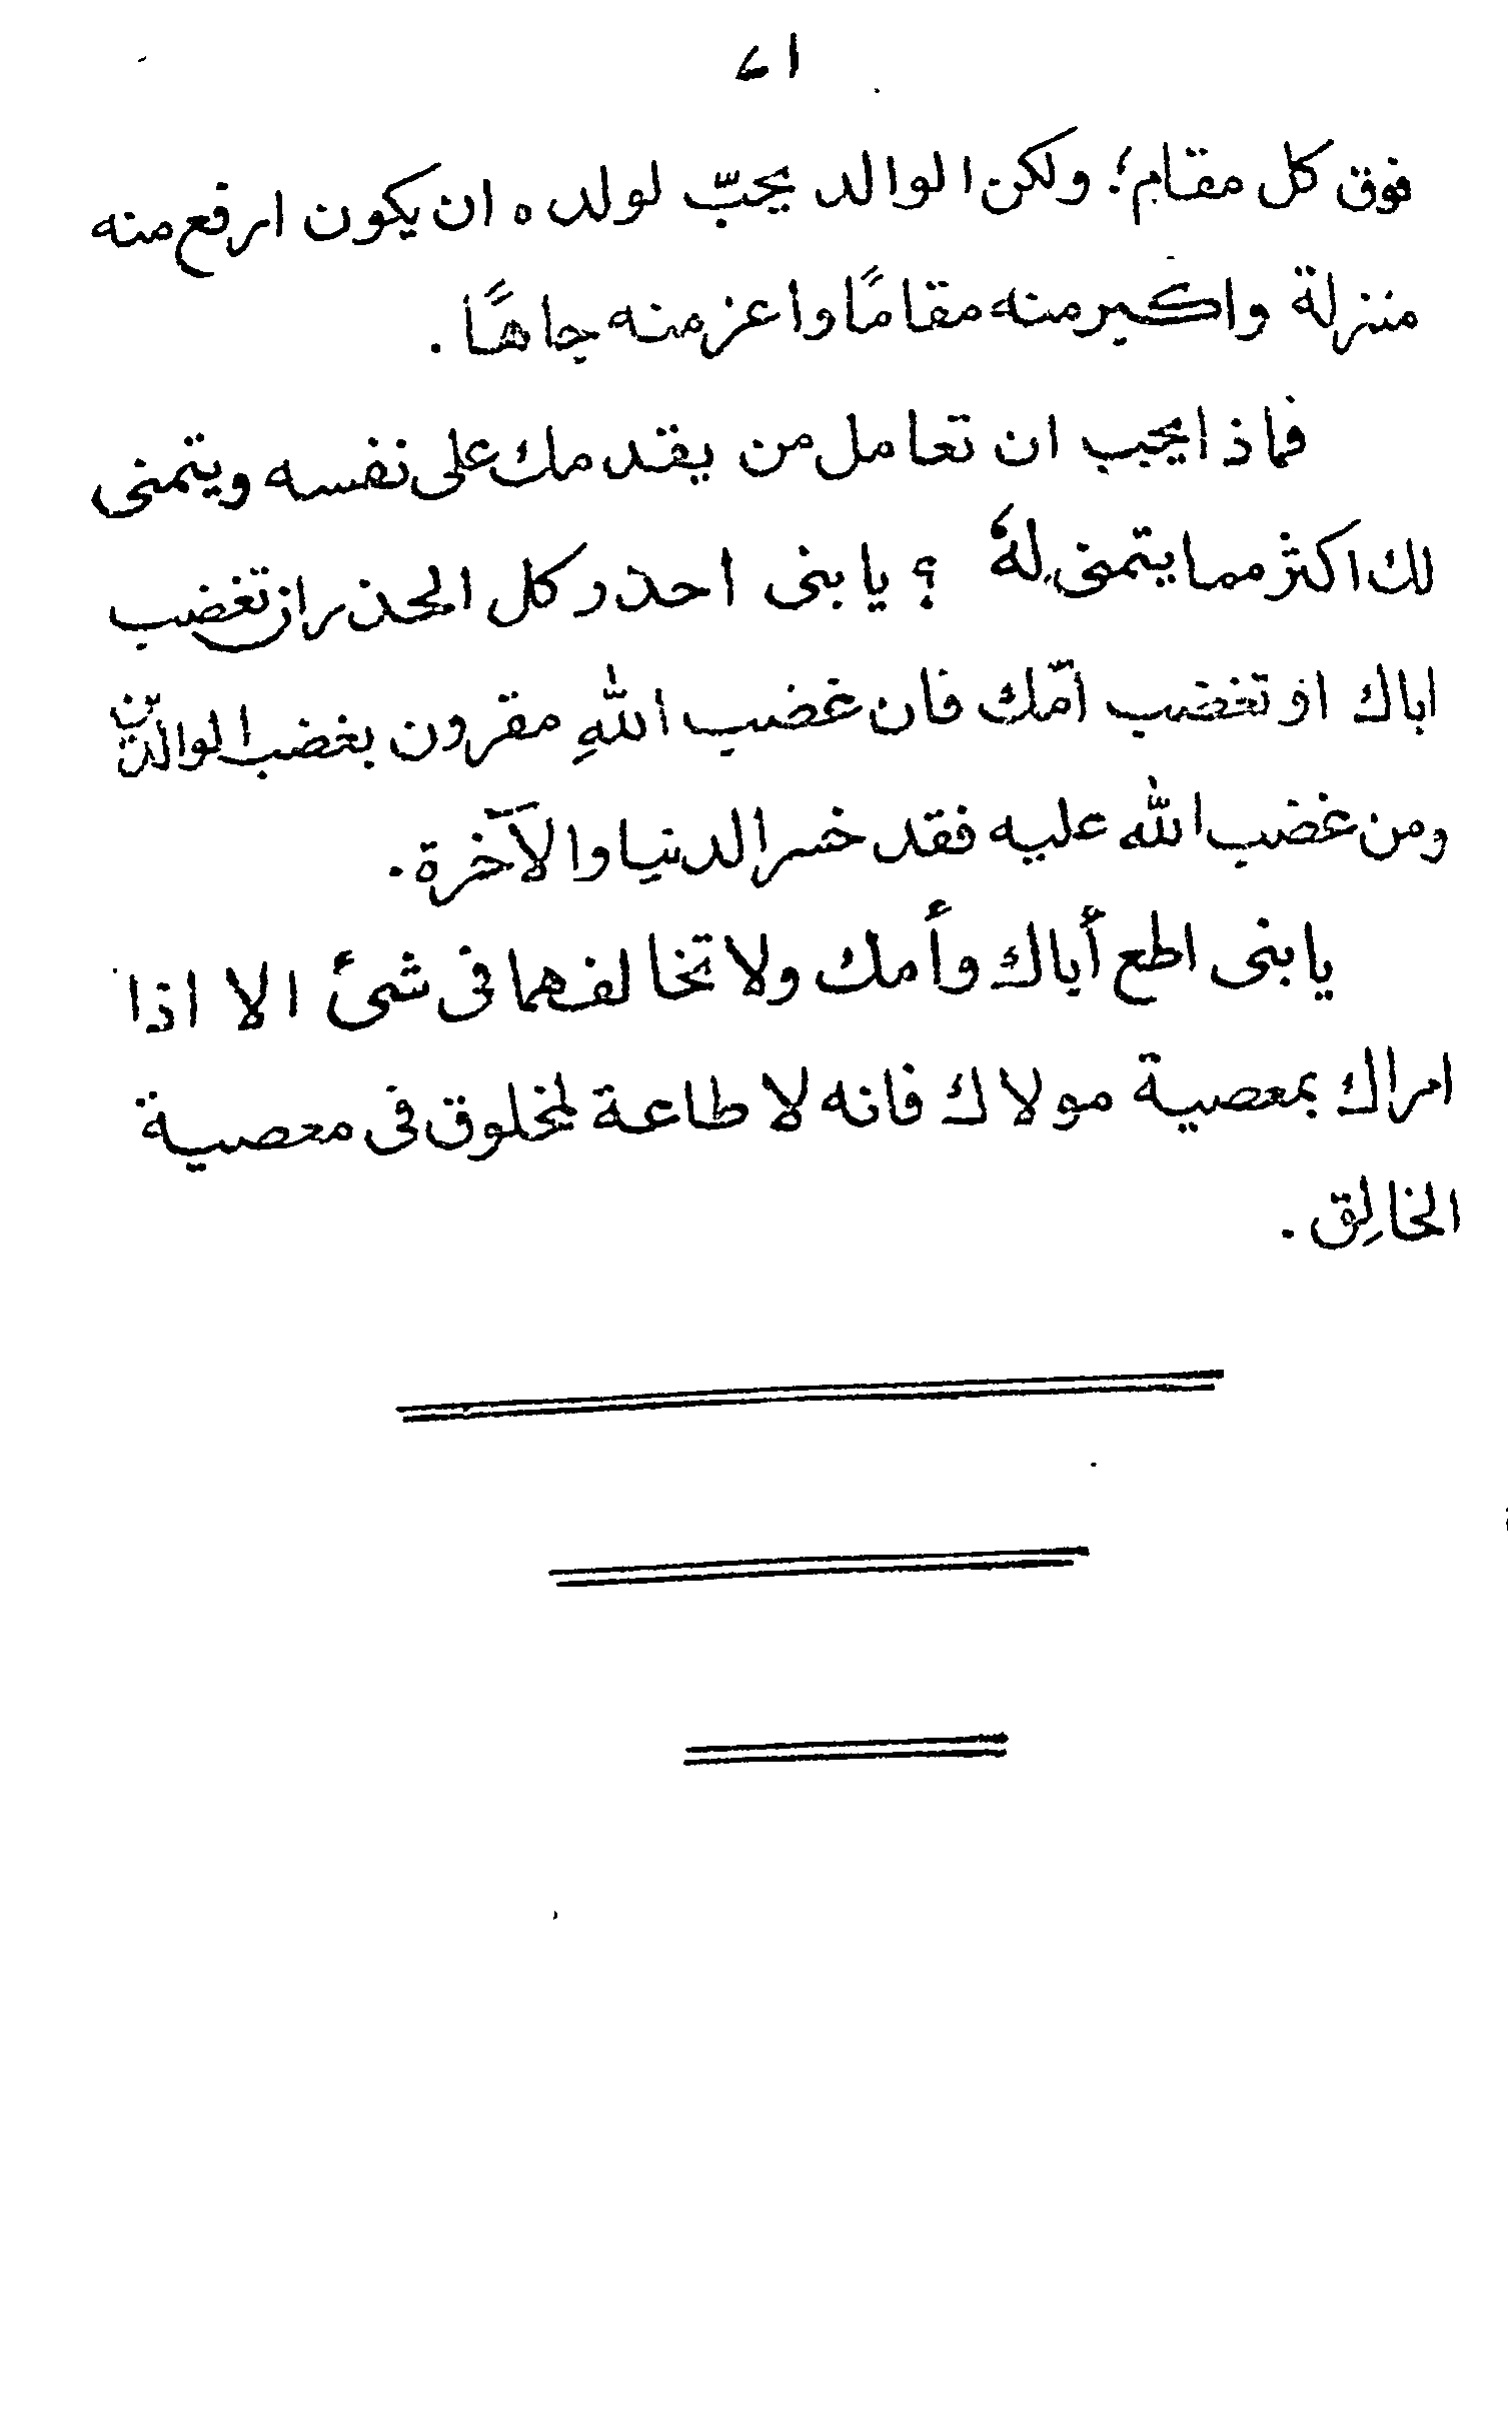 ١٦
فوق كل مقام؛ ولكن الوالد يحبّ لولده ان يكون ارفع منه
منزلة واكبر منه مقامًا واعز منه جاهًا.
فماذا يجب ان تعامل من يقدمك على نفسه ويتمنى
لك اكثر مما يتمنى له ؟ يا بنى احذر كل الحذر ان تغضب
اباك او تغضب امّك فان غضب اللهِ مقرون بغضب الوالدين
ومن غضب الله عليه فقد خسر الدنيا والآخرة.
يا بنى اطع أباك وأمك ولا تخالفهما فى شئ الا اذا
امراك بمعصية مولاك فانه لا طاعة لمخلوق فى معصية
الخالِق.